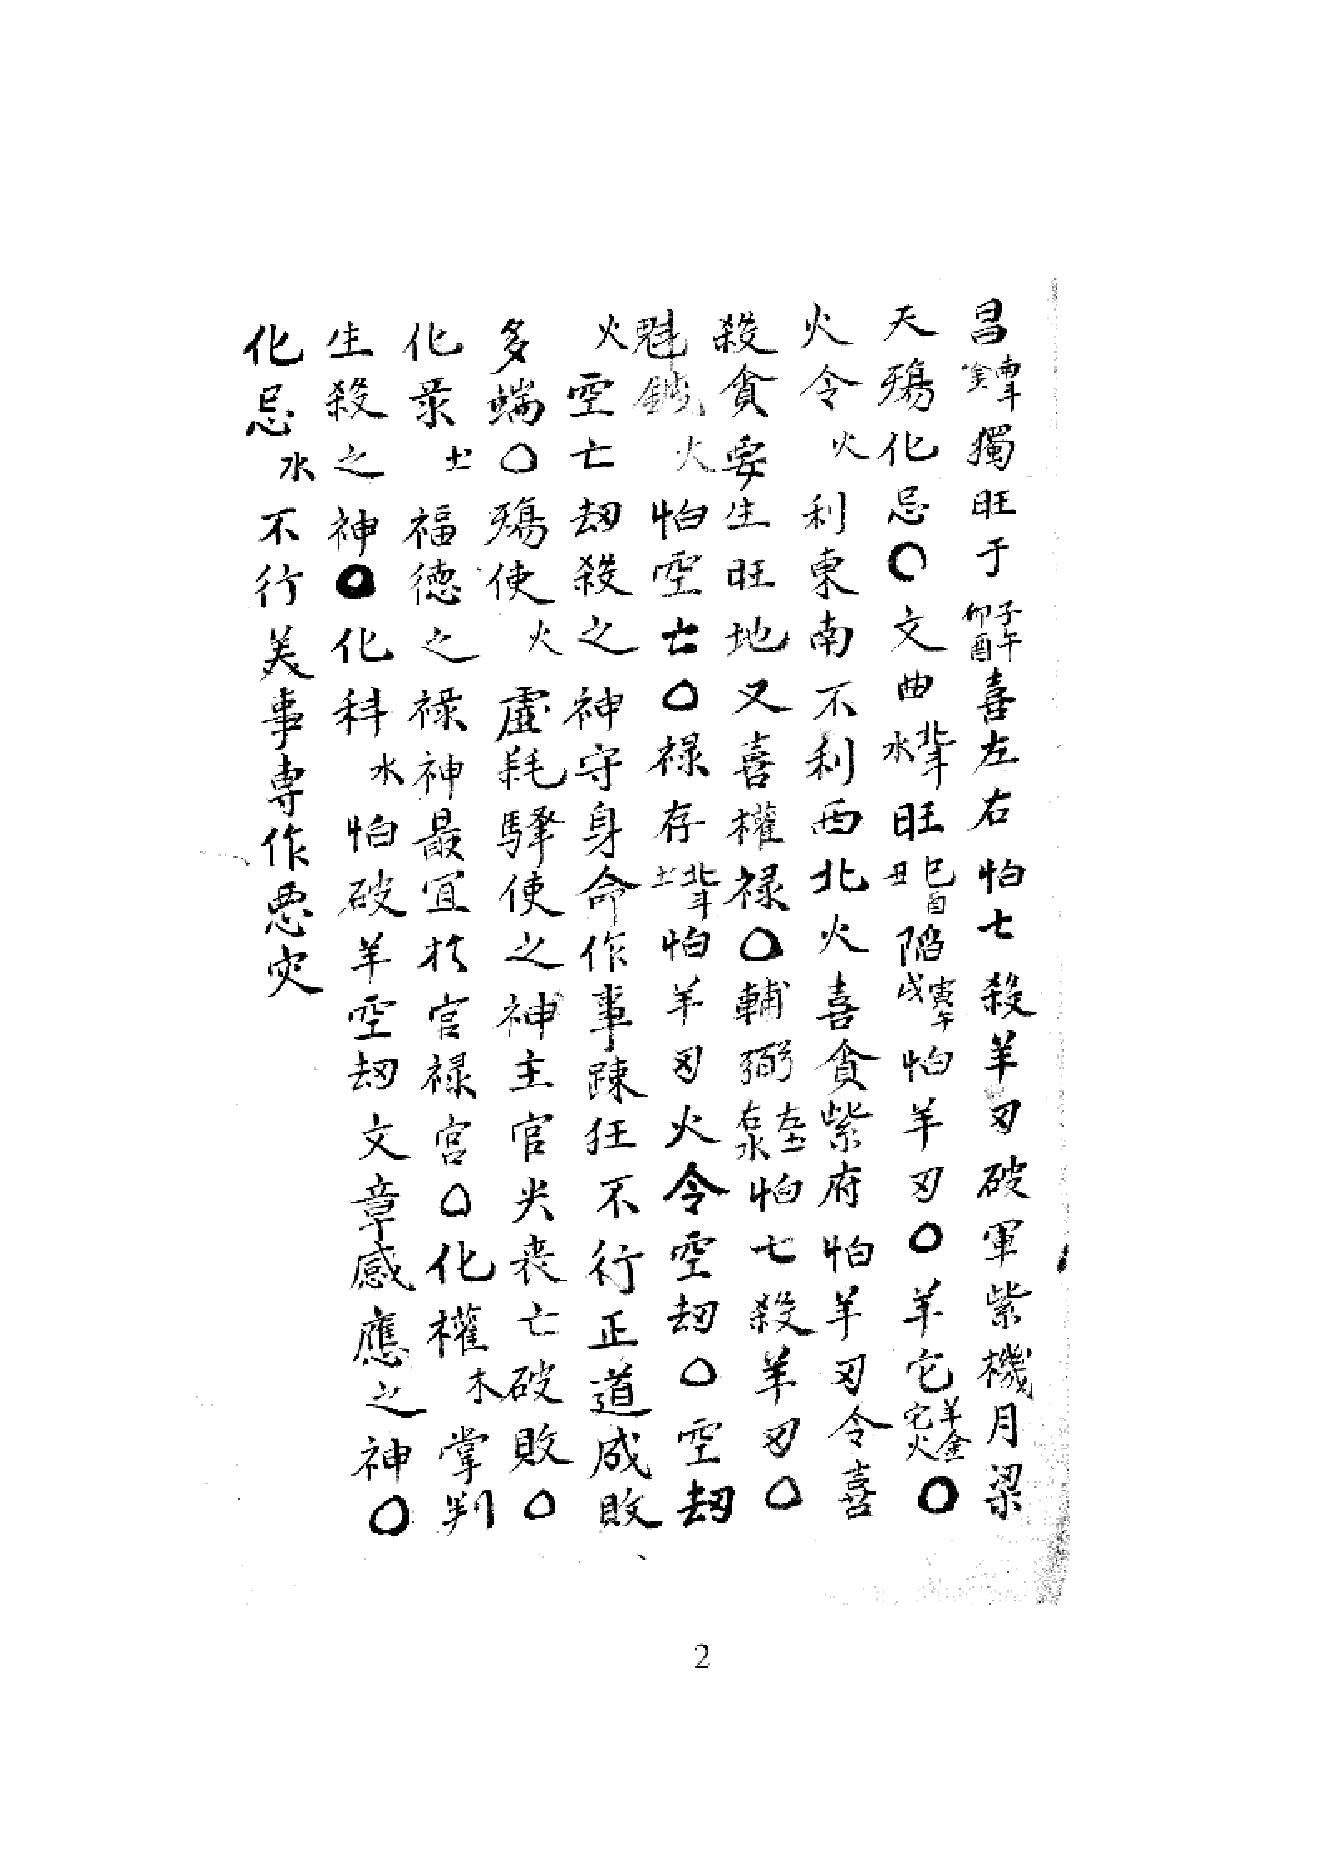 昌南斗金獨旺于子午卯酉喜左右怕七殺羊刃破軍紫機月梁
天殤化忌〇文曲北斗水旺巳酉丑陷寅午戌怕羊刃〇羊它羊金它火〇
火令火利東南不利西北火喜貪紫府怕羊刃令喜
殺貪要生旺地又喜權禄〇輔弼左土右水怕七殺羊刃〇
魁鉞火怕空亡〇禄存北斗土怕羊刃火令空刼〇空刼
火空亡刼殺之神守身命作事踈狂不行正道成敗
多端〇殤使火虛耗驛使之神主官災丧亡破敗〇
化录土福德之禄神最宜於官禄宮〇化權木掌判
生殺之神〇化科水怕破羊空刼文章感應之神〇
化忌水不行美事專作悪灾
2